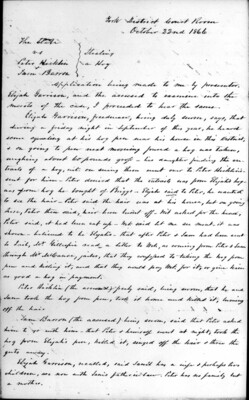 District Court Room
October 22nd 1866
The State
vs Stealing
Peter a Hog
Sam
Application being made to me by prosecutor
Elijah Garrison, and the accused to examine into the
merits of the case, I proceeded to hear the same.
Elijah Garrison, freedman, being duly sworn, says, that
during a friday night in September of this year, he heard
some at his hog pen near his house in this district,
& on going to pen next morning found a hog was taken,
weighing about 60 pounds gross - his daughter finding the en-
trails of a hog, not on seeing them went over to Peter
and for him. Peter denied that the entrails was from Elijah's hog
was from hog he bought of - Elijah said to Peter, he wanted
to see the hair. Peter said the hair was at his house, but on going
there, Peter then said, hair been hauled off. Not asked for the head,
Peter said, it had been cut up. Not said at an ear mark, it was
shown - believed to be Elijah's. That after Peter & Sam had been sent
to jail, Mr Gillespie made a bill to Nat, as coming from Peter & Sam
through Mr , Jailer, that they confessed to taking the hog from
pen and killing it, and that they would pay Nat for it, or give him
as good a hog in payment.
Peter (the accused) freely said, being sworn, that he and
Sam took the hog from pen, took it home and killed it, burning
off the hair.
Sam (the accused) being sworn, said that Peter asked
him to go with him. that Peter & himself went at night, took the
hog from Elijah's pen, killed it, singed off the hair & threw the
guts away.
Elijah Garrison, recalled, said Sam has a wife & perhaps two
children, are now with Sam's father in law. Peter has no family but
a mother.